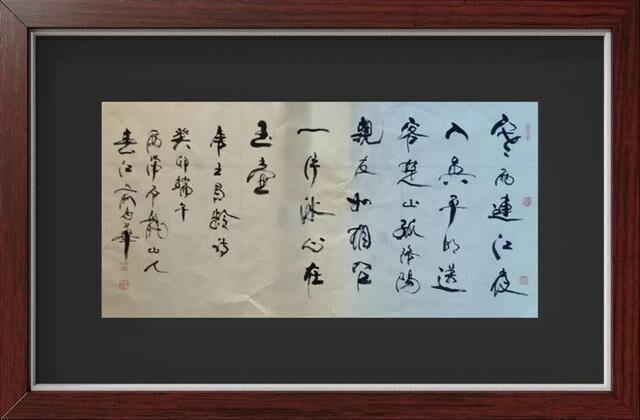 寒雨連江夜
入吳平明送
客楚山孤洛陽
親友如相問
一片冰心在
玉壺
唐王昌齡詩
癸卯端午
山人
春江 華